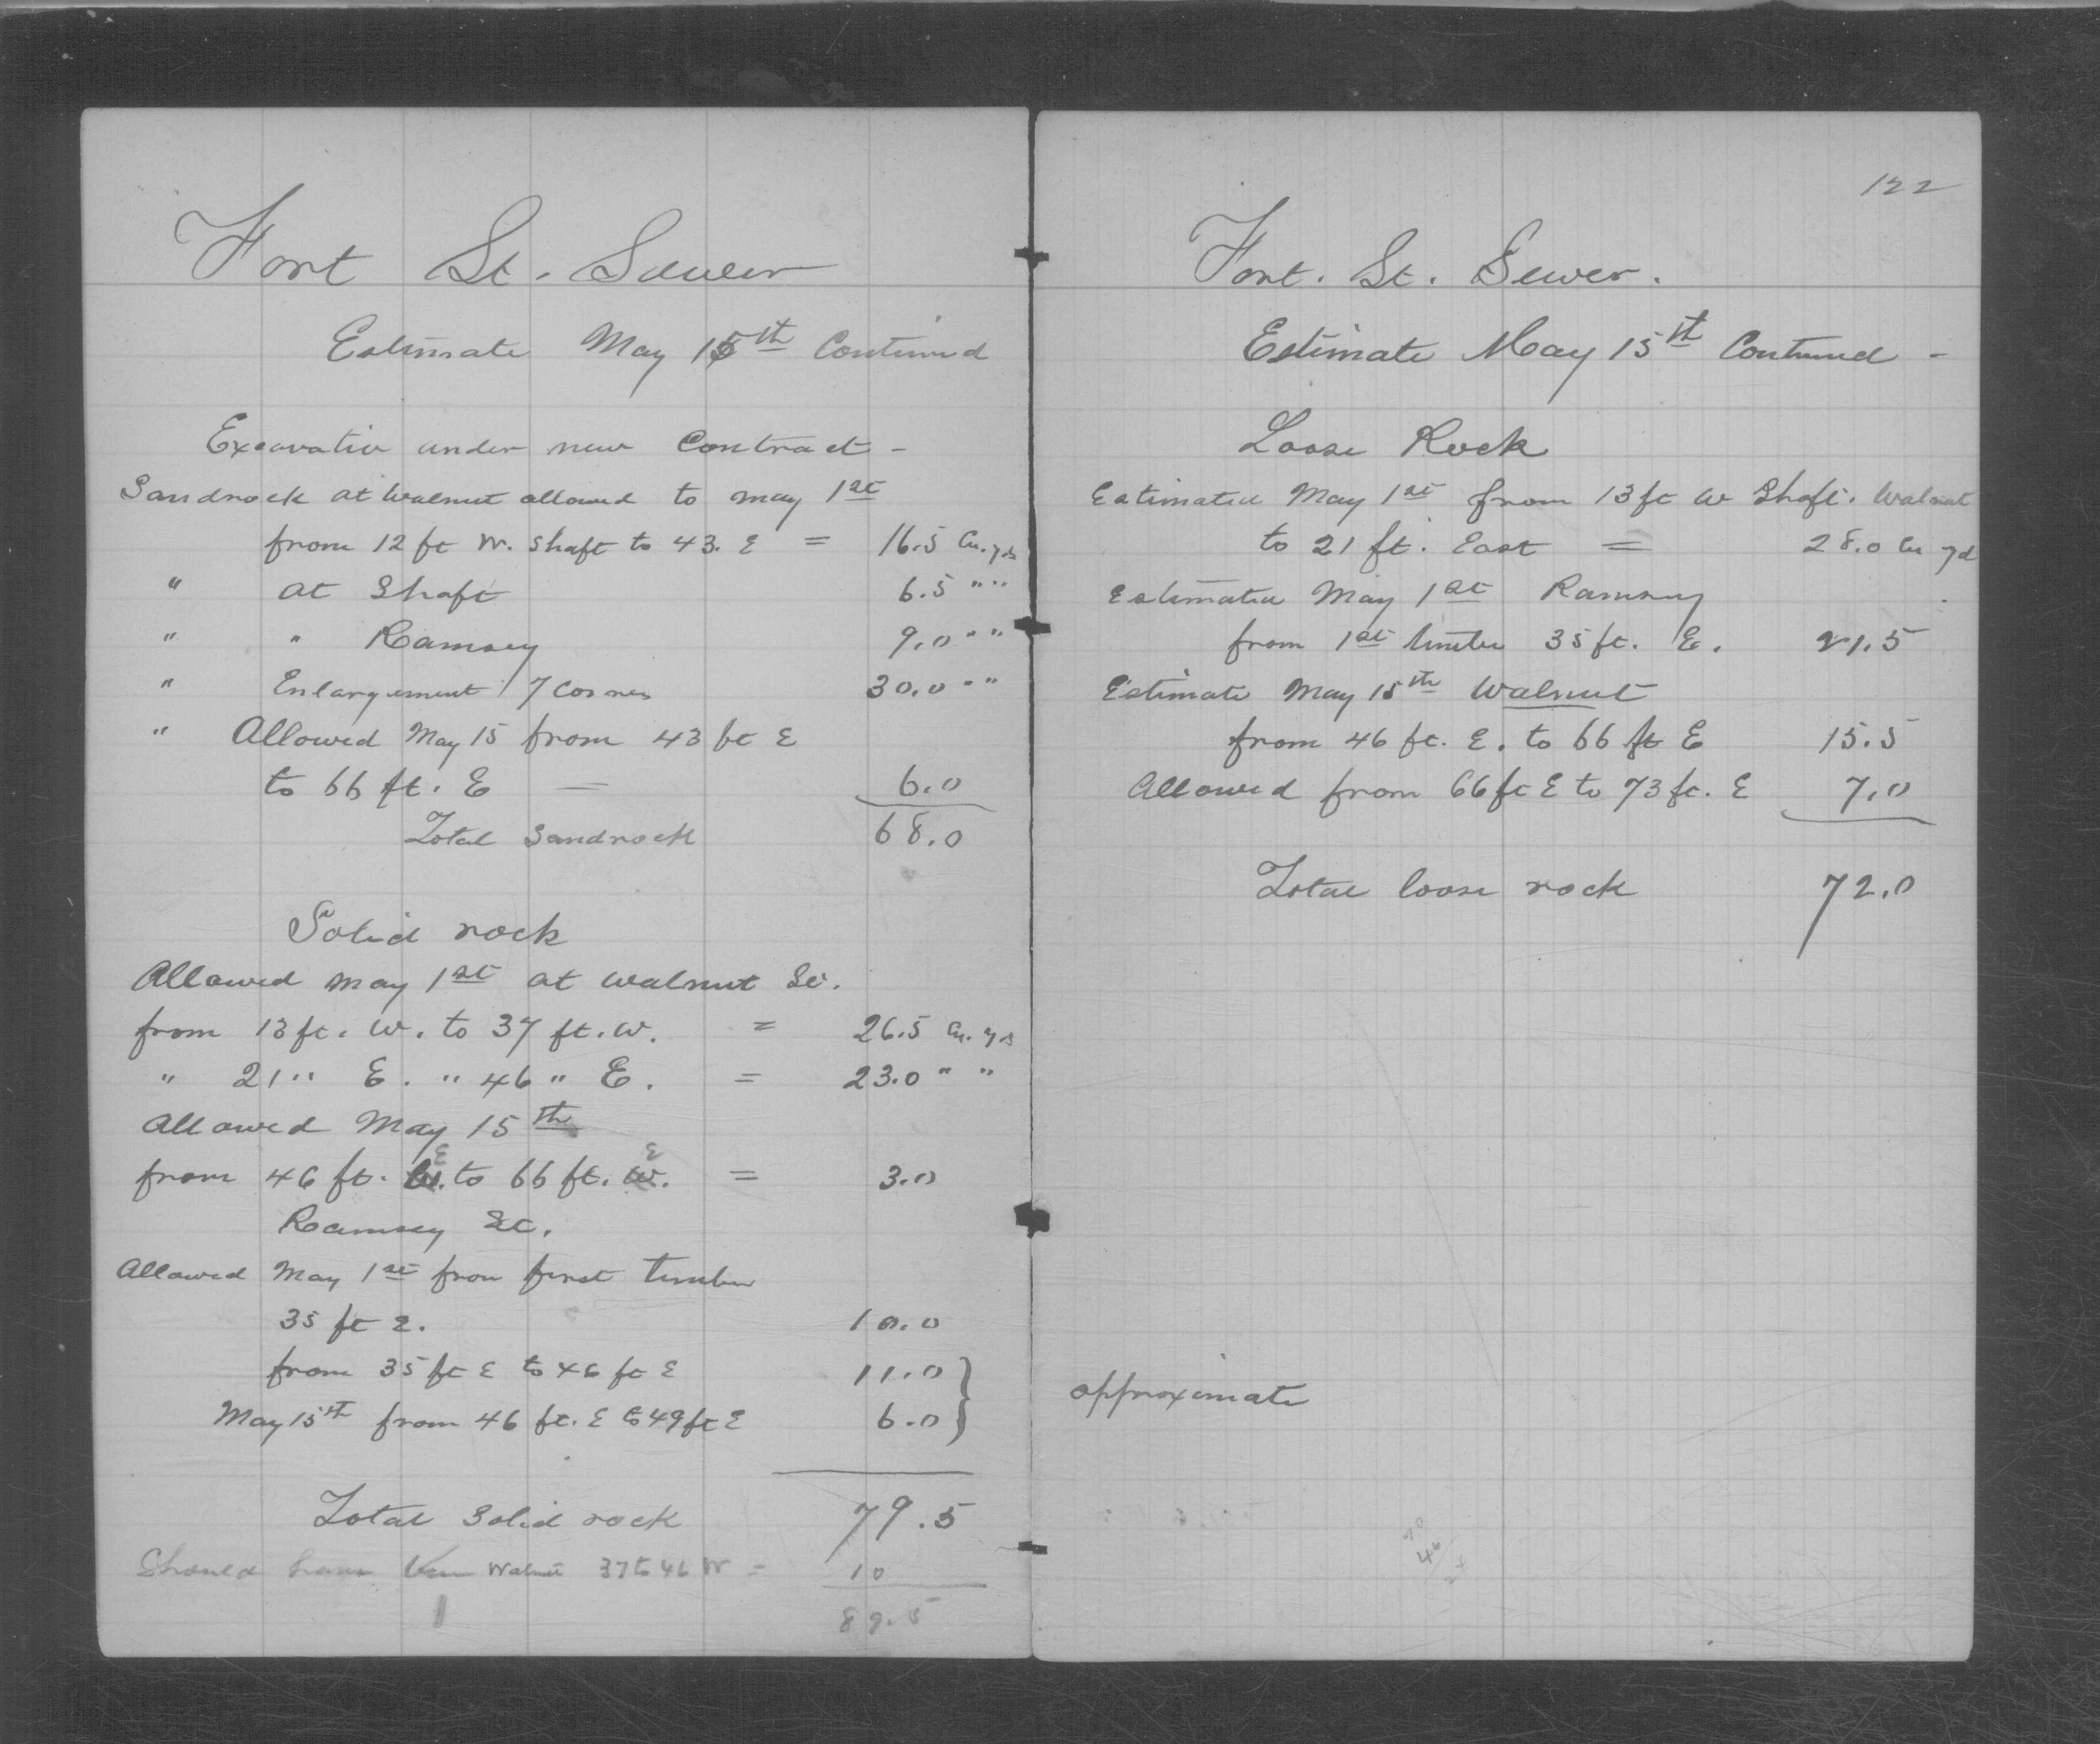 Fort St. Sewer
Estimate May 15th Continued
Excavation under new Contract -
Sandrock at Walnut allowed to may 1st
from 12 ft W. shaft to 43. E = 16.5 Cu. yds
" at Shaft 6.5 " "
" " Ramsey 9.0 " "
" Enlargement 7 Corners 30.0 " "
" Allowed May 15 from 43 ft E
to 66 ft. E — 6.0
Total Sandrock 68.0
Solid rock
Allowed may 1st at Walnut St.
from 13 ft. W. to 37 ft. W. = 26.5 Cu. yds
" 21 " E. " 46 " E. = 23.0 " "
Allowed May 15th
from 46 ft. E to 66 ft. E = 3.0
Ramsey St.
Allowed May 1st from first timber
35 ft E. 10.0
from 35 ft E to 46 ft E 11.0 }
May 15th from 46 ft. E to 49 ft E 6.0 }
Total Solid rock 79.5
Should have been Walnut 37 to 46 W = 10
89.5
122
Fort. St. Sewer.
Estimate May 15th Continued -
Loose Rock
Estimated May 1st from 13 ft W Shaft. Walnut
to 21 ft. East = 28.0 Cu yd
Estimated May 1st Ramsey
from 1st timber 35 ft. E. 21.5
Estimate May 15th Walnut
from 46 ft. E. to 66 ft E 15.5
Allowed from 66 ft E to 73 ft. E 7.0
Total loose rock 72.0
approximate